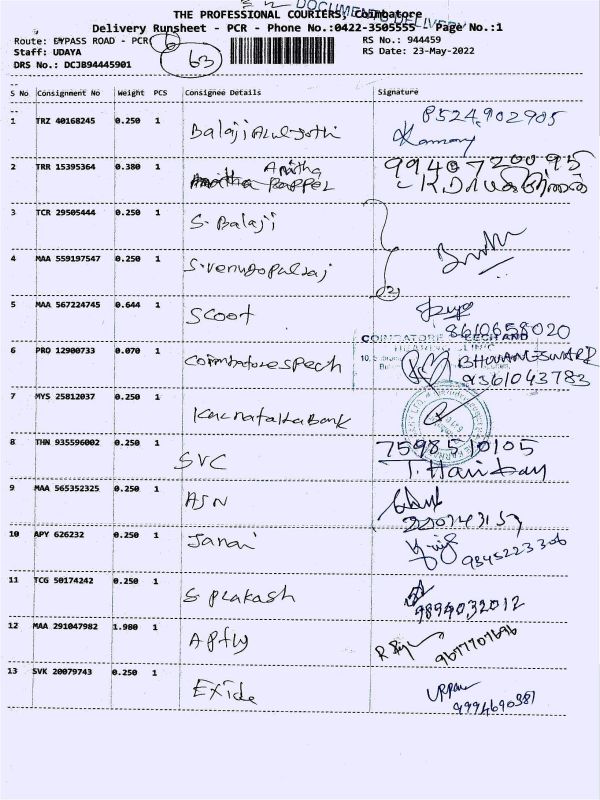 DOCUMENTS DELIVERY
THE PROFESSIONAL COURIERS, Coimbatore
Delivery Runsheet - PCR - Phone No.:0422-3505555 - Page No.:1
Route: BYPASS ROAD - PCR 6 RS No.: 944459
Staff: UDAYA 63 RS Date: 23-May-2022
DRS No.: DCJB94445901
S No Consignment No Weight PCS Consignee Details Signature
1 TRZ 40168245 0.250 1 Balaji 8524902905
2 TRR 15395364 0.380 1 Anitha 9940720095
3 TCR 29505444 0.250 1 S. Balaji
4 MAA 559197547 0.250 1 S. Venugopalraj (2)
5 MAA 567224745 0.644 1 Scoot 8610658020
COIMBATORE SPEECH AND
HEARING CLINIC
6 PRO 12900733 0.070 1 Coimbatore Speech BHUVANESWARI
9361043783
7 MYS 25812037 0.250 1 Karnataka Bank
8 THN 935596002 0.250 1 SVC 7598510105
9 MAA 565352325 0.250 1 ASN
10 APY 626232 0.250 1 Janani 9345223306
11 TCG 50174242 0.250 1 S. Prakash 9894032012
12 MAA 291047982 1.980 1 Apfly 9677707696
13 SVK 20079743 0.250 1 Exide 9994690381